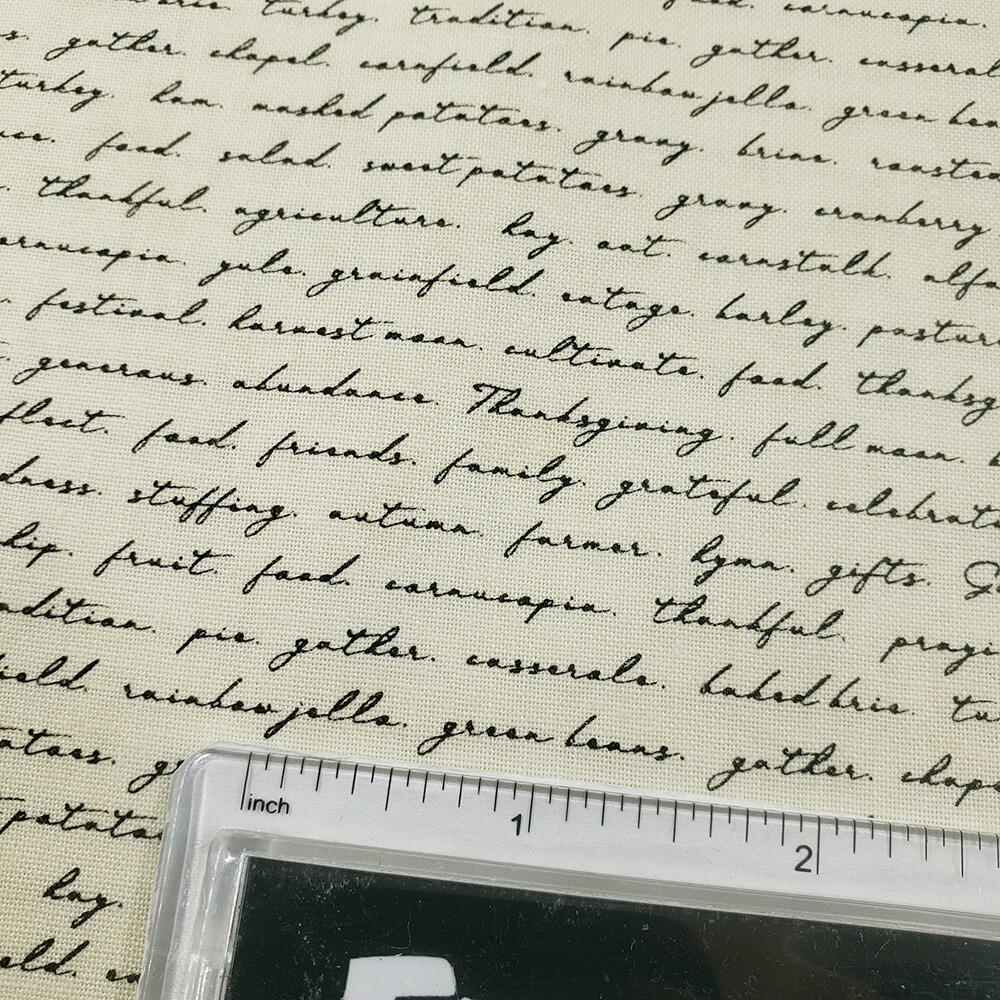 turkey. tradition. pie. gather. casserol
food. cornucopia.
gather. chapel. cornfield. rainbow jello. green bea
turkey. ham. mashed potatoes. gravy. brine. roasted
food. salad. sweet potatoes. gravy. cranberry
thankful. agriculture. hay. oat. cornstalk. alfa
ornucopia. yule. grainfield. cotage. barley. pastur
festival. harvest moon. cultivate. food. thanksg
generous. abundance. Thanksgiving. full moon.
flect. food. friends. family. grateful. celebrat
dness. stuffing. autumn. farmer. hymn. gifts.
hip. fruit. food. cornucopia. thankful. prayi
adition. pie. gather. casserole. baked brie. tu
ield. rainbow jello. green beans. gather. chape
atoes. g
potato
hay.
eld. co
inch 1 2